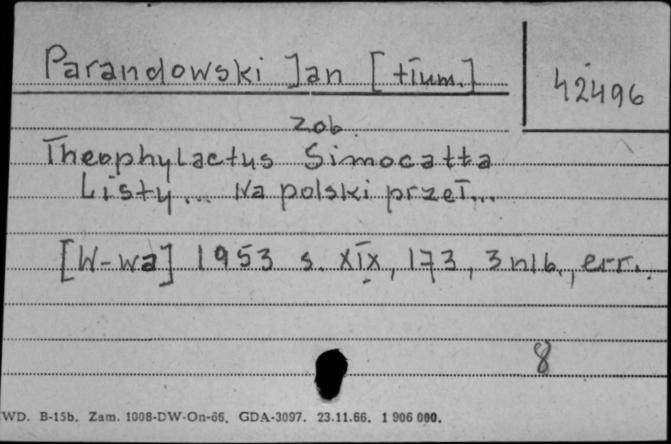 Parandowski Jan [tłum.]
42496
zob.
Theophylactus Simocatta
Listy... Na polski przeł...
[W-wa] 1953 s. XIX, 173, 3 nlb., err.
8
WD. B-15b. Zam. 1008-DW-On-66. GDA-3097. 23.11.66. 1 906 000.